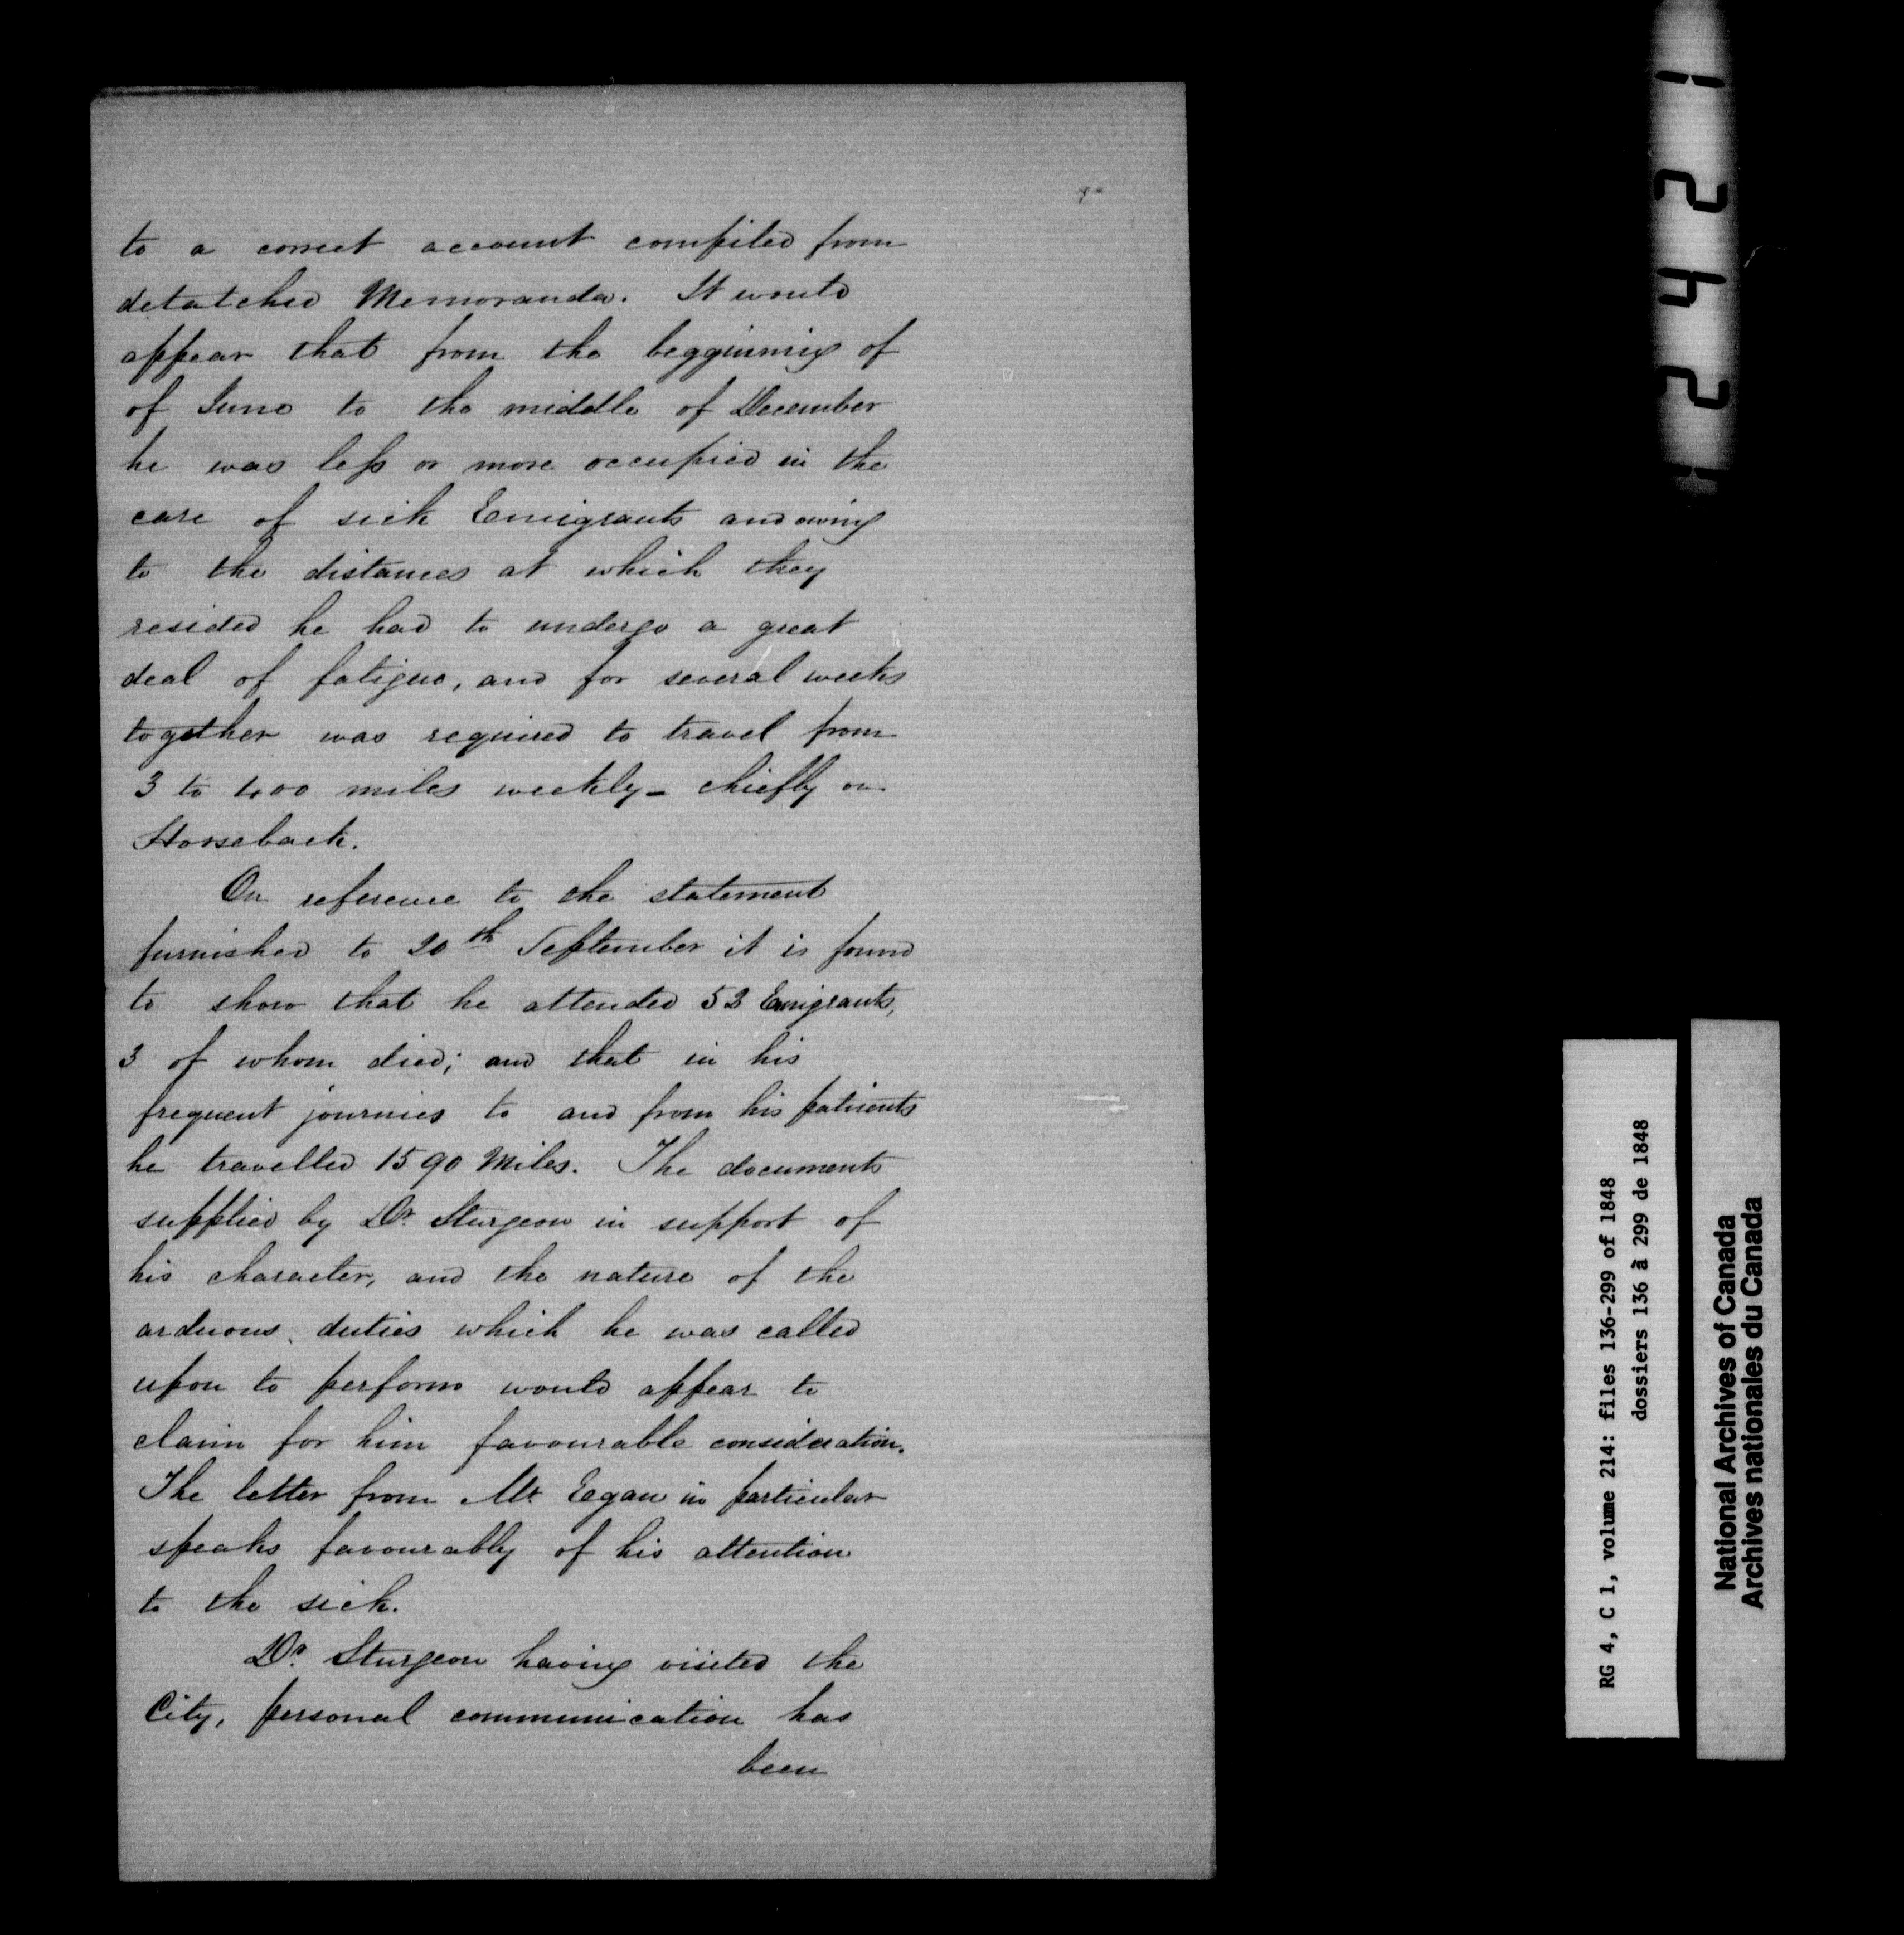 to a correct account compiled from
detatched Memoranda. It would
appear that from the begginning of
of June to the middle of December
he was less or more occupied in the
care of sick Emigrants and owing
to the distances at which they
resided he had to undergo a great
deal of fatigue, and for several weeks
together was required to travel from
3 to 400 miles weekly - chiefly on
Horseback.
On reference to the statement
furnished to 20th September it is found
to show that he attended 53 Emigrants,
3 of whom died; and that in his
frequent journies to and from his patients
he travelled 1590 Miles. The documents
supplied by Dr. Sturgeon in support of
his character, and the nature of the
arduous duties which he was called
upon to perform would appear to
claim for him favourable consideration.
The letter from Mr Eagan in particular
speaks favourably of his attention
to the sick.
Dr. Sturgeon having visited the
City, personal communication has
been
1242
RG 4, C 1, volume 214: files 136-299 of 1848
dossiers 136 à 299 de 1848
National Archives of Canada
Archives nationales du Canada